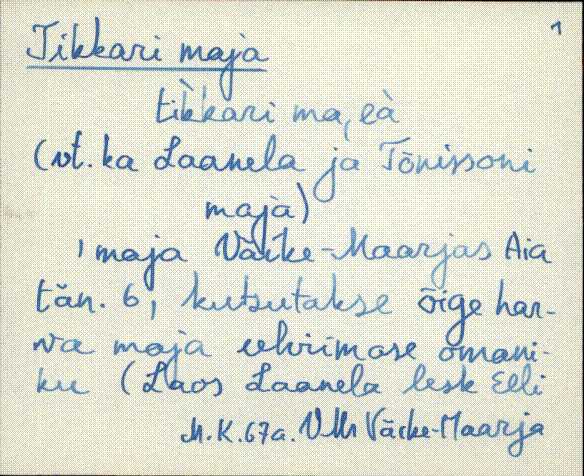 1
Tikkari maja
tik̀kari ma,eà
(vt. ka Laanela ja Tõnissoni
maja)
, maja Väike-Maarjas Aia
tän. 6, kutsutakse õige har-
va maja eelviimase omani-
ku (Laos Laanela lesk Elli
M.K. 67a. VMr Väike-Maarja